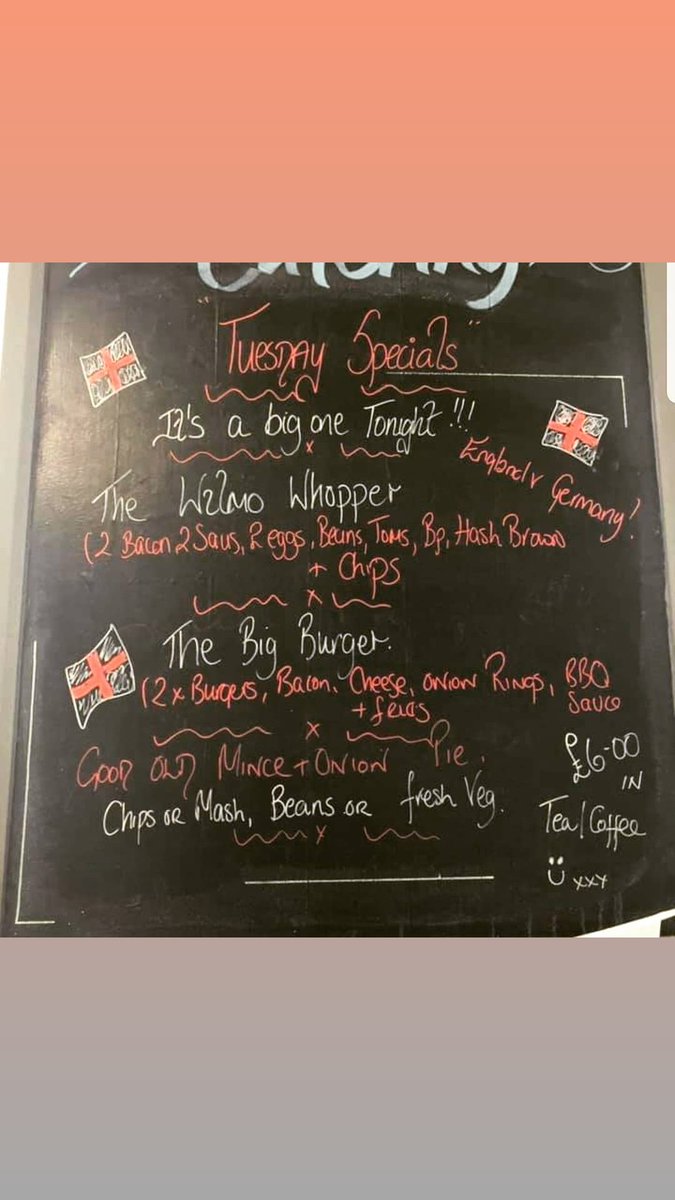 Catering
"Tuesday Specials"
It's a big one Tonight!!!
England v Germany!
The Wilmo Whopper
(2 Bacon 2 Saus, 2 eggs, Beans, Toms, Bp, Hash Brown
+ Chips
x
The Big Burger.
(2 x Burgers, Bacon, Cheese, onion Rings, BBQ Sauce
x
Good Old Mince + Onion Pie.
Chips or Mash, Beans or fresh Veg.
x
£6.00
IN
Tea/Coffee
xxx